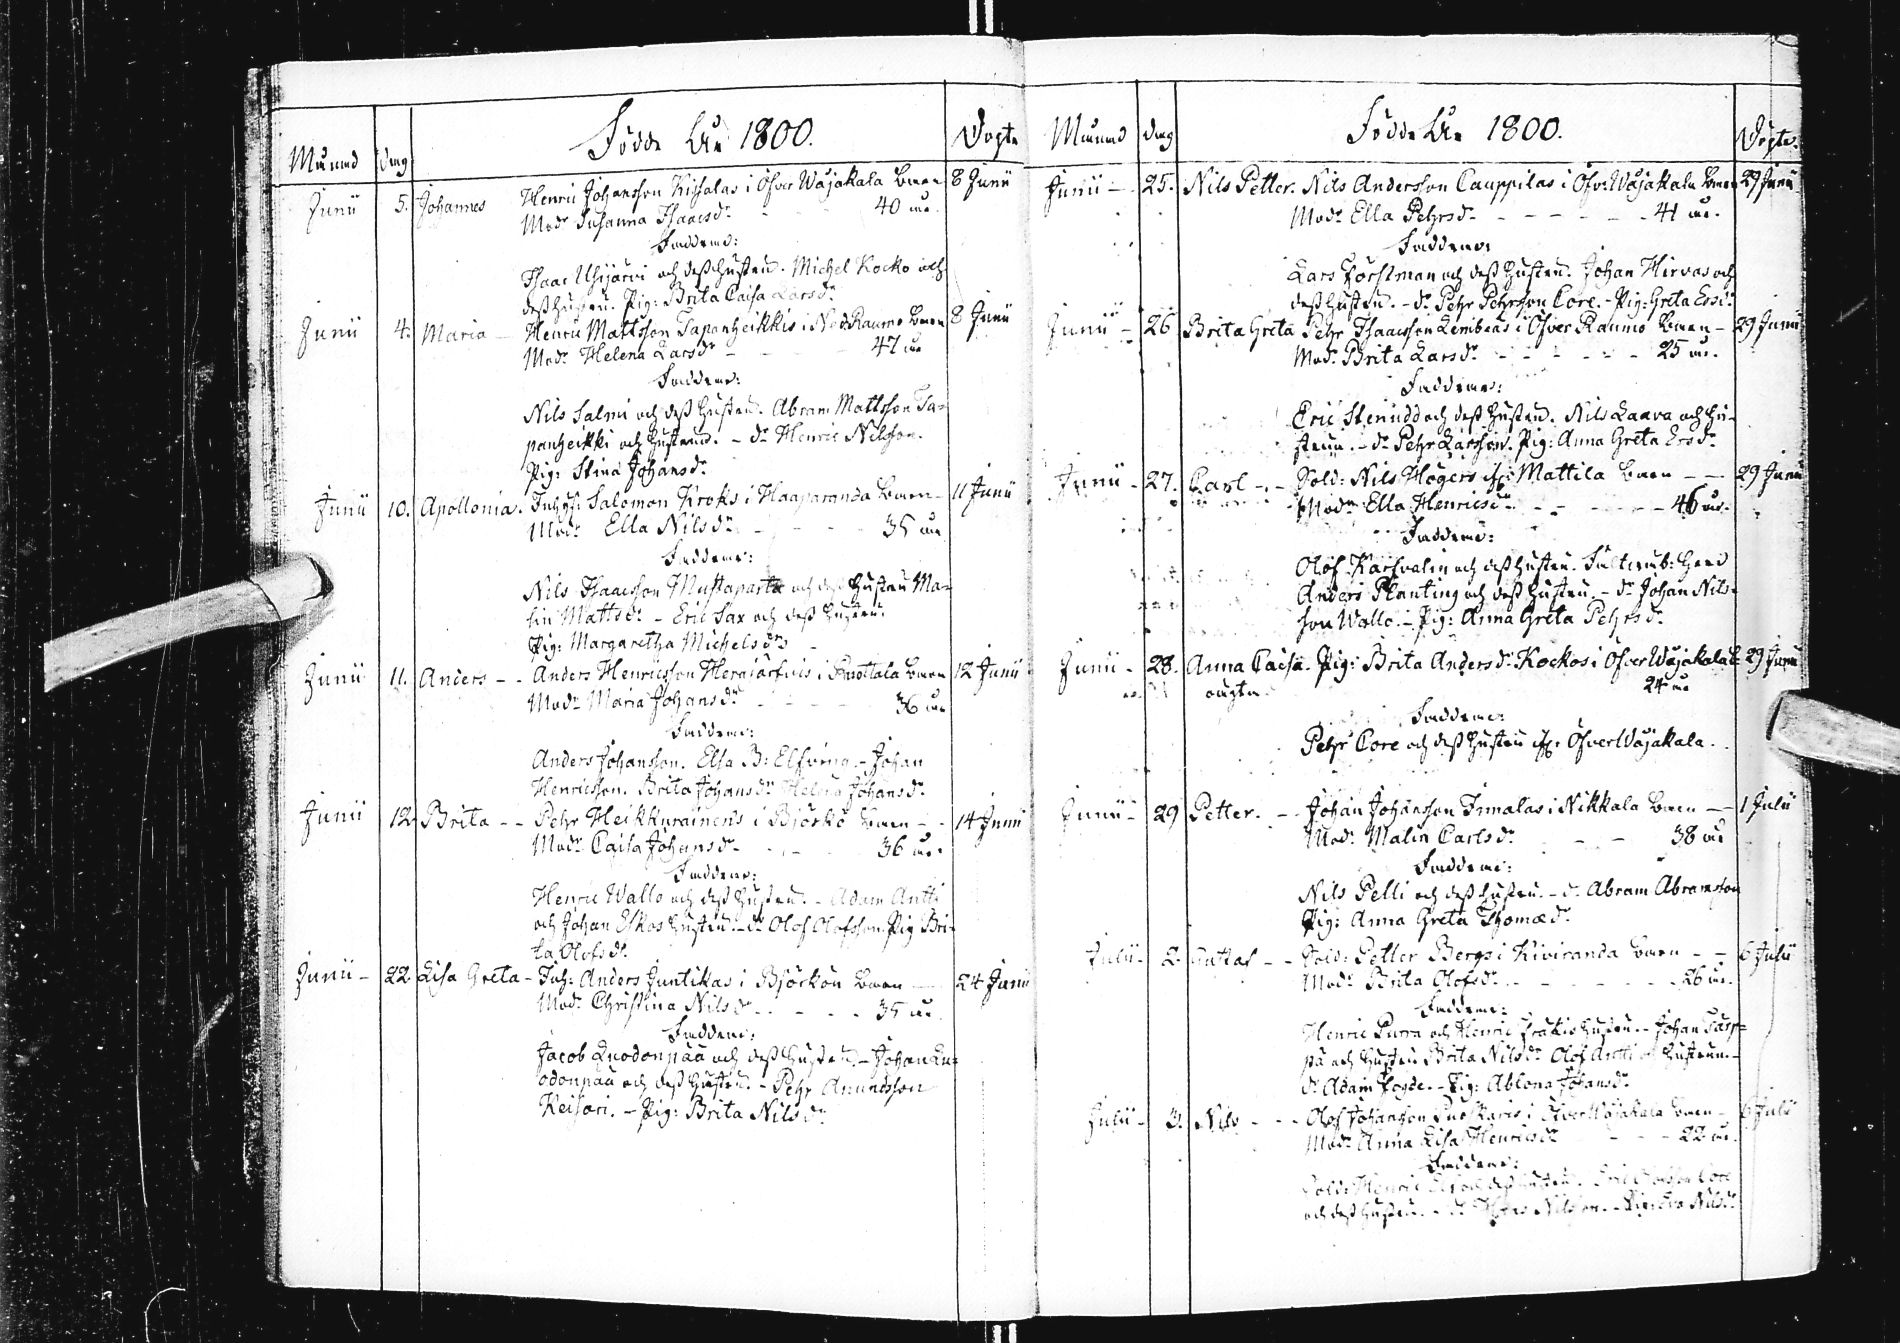 Månad dag Födde År 1800. Döpte
Junii 5. Johannes Henric Johansson Kissalas i Öfver Wojakala barn 8 Junii
Mod: Susanna Isaacsdr 40 år.
Faddrene:
Isaac Ylijärvi och dess hustru. Michel Kocko och
dess hustru. Pig: Brita Caisa Larsdr
Junii 4. Maria - Henric Mattsson Tapanheikkis i Ned Raumo barn 8 Junii
Mod: Helena Larsdr - - - 47 år
Faddrene:
Nils Salmi och dess hustru. Abram Mattsson Ta-
panheikki och hustrun. - dr Henric Nilsson.
Pig: Stina Johansdr
Junii 10. Apollonia. Inhys: Salomon Kroks i Haaparanda barn - 11 Junii
Mod: Ella Nilsdr - - - 35 år
Faddrene:
Nils Isaacsson Mustaparta och dess hustru Ma-
lin Mattsdr - Eric Sax och dess hustru.
Pig: Margaretha Michelsdr
Junii 11. Anders - - Anders Henricsson Herajärfvis i Vuottala barn 12 Junii
Mod: Maria Johansdr - - - 36 år
Faddrene:
Anders Johansson. Elsa B: Elfving. - Johan
Henricsson. Brita Johansdr Helena Johansdr
Junii 12. Brita - - Pehr Heikkurainens i Björkö barn - - 14 Junii
Mod: Caisa Johansdr - - - 36 år.
Faddrene:
Henric Wallo och dess hustru. - Adam Antti
och Johan Eskos hustru. - dr Olof Olofsson. Pig Bri-
ta Olofsdr
Junii - 22 Lisa Greta - Inh: Anders Juntikas i Björkön barn - 24 Junii
Mod: Christina Nilsdr - - - 35 år.
Faddrene:
Jacob Luodonpää och dess hustru. - Johan Lu-
odonpää och dess hustru. - Pehr Amundsson
Keisari. - Pig: Brita Nilsdr
Månad dag Födde År 1800. Döpte.
Junii - 25. Nils Petter. Nils Andersson Cauppilas i Öfv: Wojakala barn 29 Junii
Mod: Ella Pehrsdr - - - 41 år.
Faddrene:
Lars Forstman och dess hustru. Johan Hirvas och
dess hustru. - dr Pehr Pehrsson Core. - Pig: Greta Ersdr
Junii - 26 Brita Greta Pehr Isaacsson Lembeas i Öfver Raumo barn - 29 Junii
Mod: Brita Larsdr - - - 25 år.
Faddrene:
Eric Stenudd och dess hustru. Nils Laava och hu-
strun. - dr Pehr Larsson. Pig: Anna Greta Ersdr
Junii - 27. Carl - - Sold: Nils Högers if: Mattila barn - - 29 Junii
Mod: Ella Henricsdr - - - 46 år.
Faddrene:
Olof Karsvalin och dess hustru. Fältväb: Herr
Anders Planting och dess hustru. - dr Johan Nils-
son Wallo. - Pig: Anna Greta Pehrsdr
Junii - 28. Anna Caisa. Pig: Brita Andersdr Kockos i Öfver Wojakala b. 29 Junii
oägta 24 år
Faddrene:
Pehr Core och dess hustru if: Öfver Wojakala.
Junii - 29 Petter. - - Johan Johansson Immalas i Nikkala barn - 1 Julii
Mod: Malin Carlsdr - - 38 år
Faddrene:
Nils Pelli och dess hustru. - dr Abram Abramsson
Pig: Anna Greta Thomædr
Julii - 2. Gustaf - - Sold: Petter Bergs i Kiviranda barn - - 6 Julii
Mod: Brita Olofsdr - - - 26 år.
Faddrene:
Henric Purra och Henric hustru. - Johan
på och hustru Brita Nilsdr Olof Antti och hustrun. -
dr Adam Fogde. - Pig: Ablona Johansdr
Julii - 3. Nils - - - Olof Johansson i Öfver Wojakala barn - 6 Julii
Mod: Anna Lisa Henricsdr - - - 22 år.
Faddrene:
Sold: Henric och dess hustru. Eric Core
och dess hustru. - dr Nilsson. - Pig: Eva Nilsdr